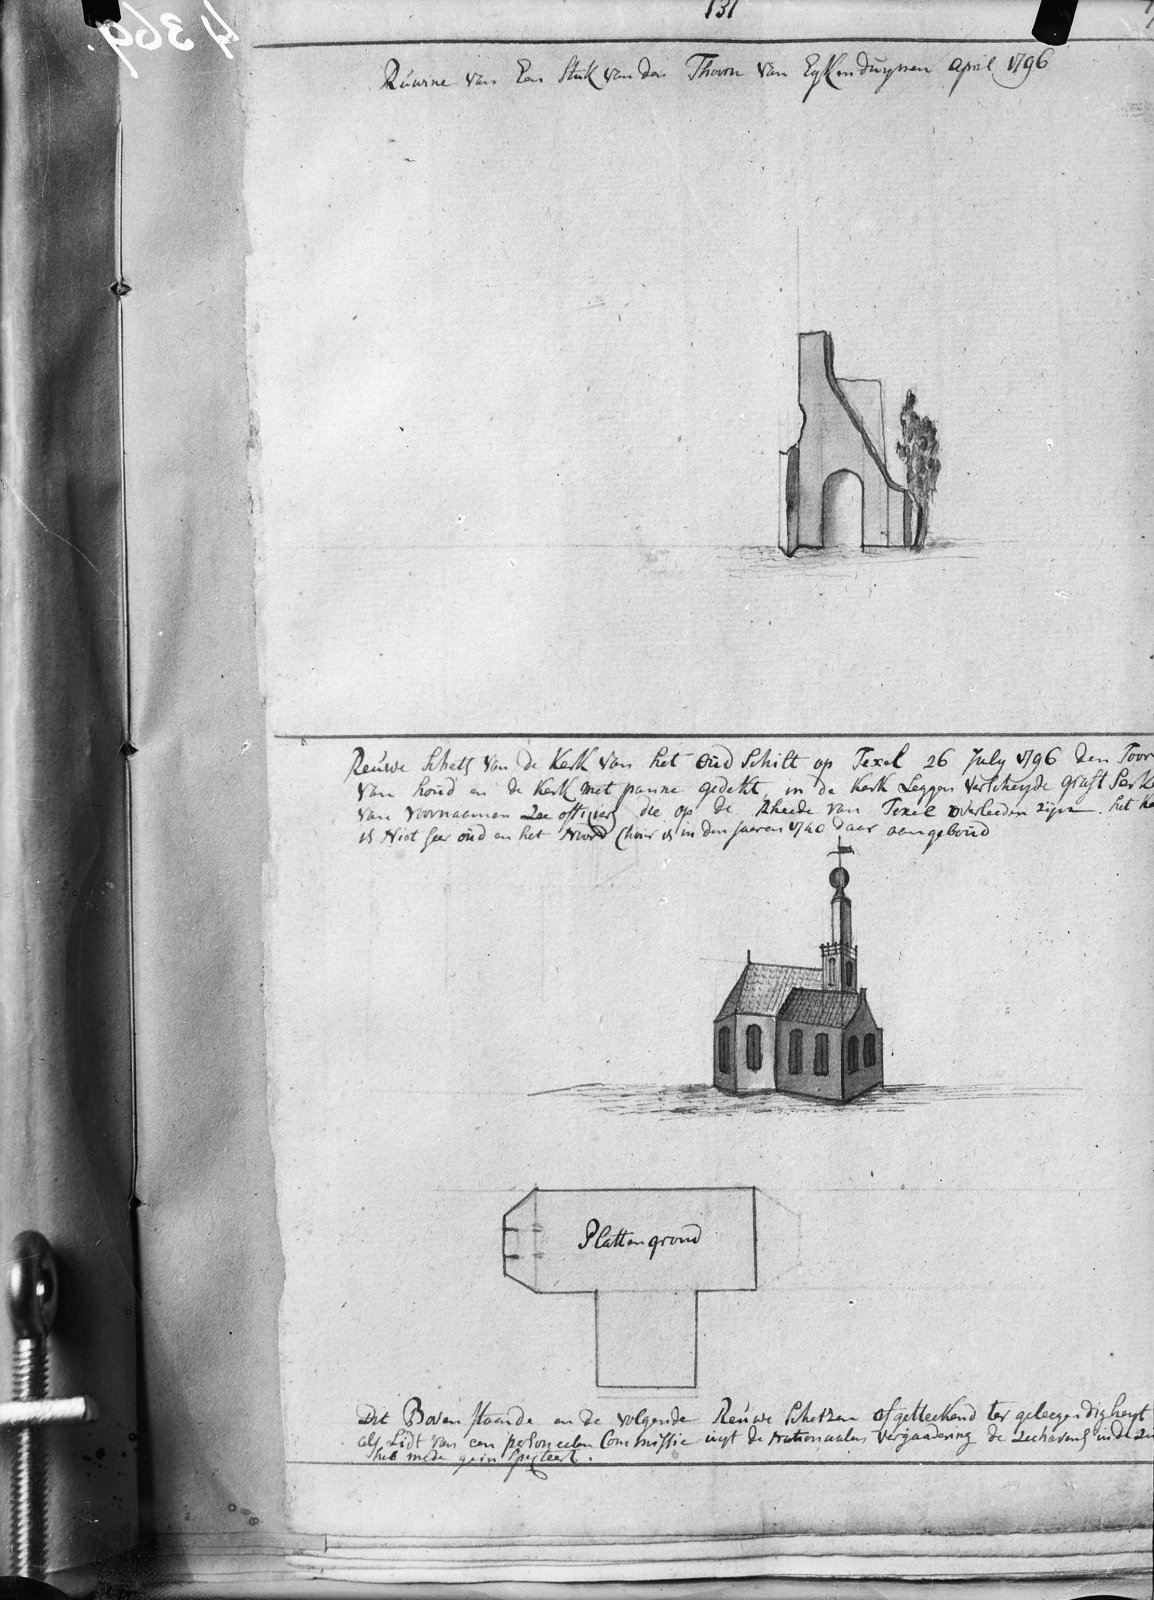 4369.
131
Ruwine van Een Stuk van den Thoorn van Eykenduynen april 1796
Reuwe Schets van de Kerk van het Oud Schilt op Texel 26 July 1796 den Toor
van houd en de Kerk met panne gedekt, in de Kerk Leggen verscheyde graft
van voornaamen Zee officiers die op de Rheede van Texel overleeden zijn. het
is Niet seer oud en het Noord Choir is in den Jaeren 1740 daar aangeboud
Plattengrond
Dit Bovenstaande en de volgende Reuwe Schetzen afgeteekend ter geleegendigheyt
als Lidt van een personeelen Commissie uyt de Nationaalen vergaadering de Zeehavens in de
heb mede geinspecteert.